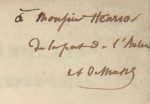 à Monsieur Henrion
de la part de l'Auteur
A. de Musset